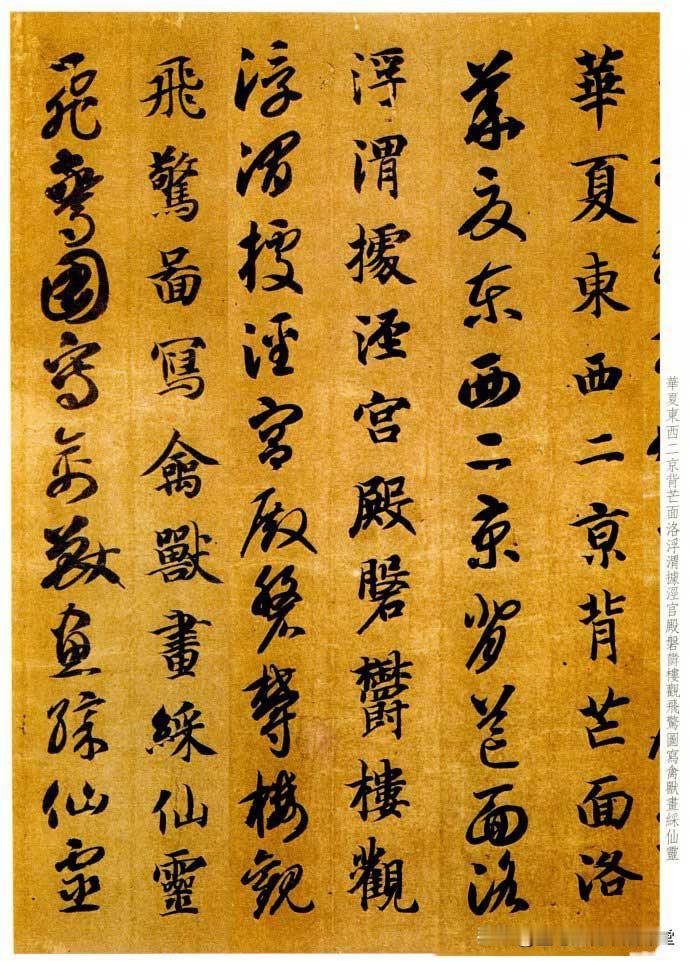 華夏東西二京背芒面洛
華夏東西二京背芒面洛
浮渭據涇宮殿磐鬱樓觀
浮渭據涇宮殿磐鬱樓觀
飛驚圖寫禽獸畫綵仙靈
飛驚圖寫禽獸畫綵仙靈
華夏東西二京背芒面洛浮渭據涇宮殿磐鬱樓觀飛驚圖寫禽獸畫綵仙靈